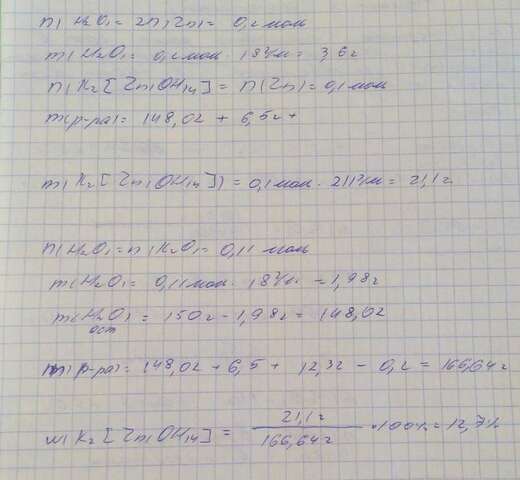 n(H2O)=2n(Zn)= 0,2 моль
m(H2O)= 0,2 моль · 18г/м = 3,6г
n(K2[Zn(OH)4]=n(Zn)=0,1 моль
m(р-ра)= 148,02 + 6,5г +
m(K2[Zn(OH)4])=0,1 моль · 211г/м = 21,1г.
n(H2O)=n(K2O)= 0,11 моль
m(H2O)= 0,11 моль · 18г/м = 1,98г
m(H2O)ост = 150г - 1,98г = 148,02
m(р-ра)= 148,02 + 6,5 + 12,32 - 0,2 = 166,64г
w(K2[Zn(OH)4]= 21,1г / 166,64г · 100% = 12,7%